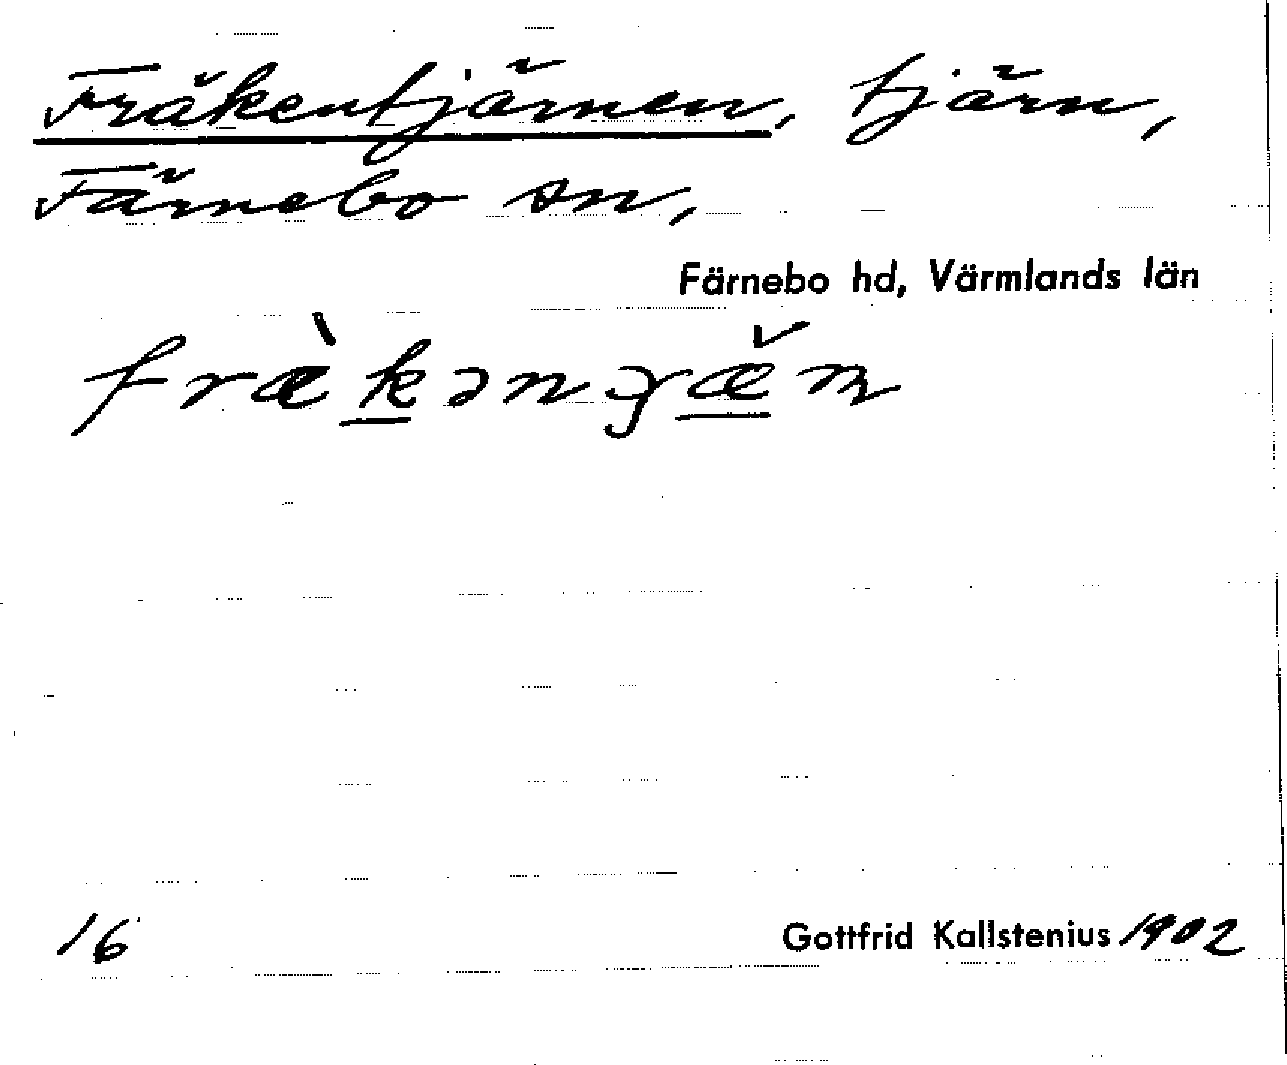 Fräkentjärnen, tjärn,
Färnebo sn,
Färnebo hd, Värmlands län
fræ̀kənɟæ̌ɳ
16
Gottfrid Kallstenius 1902